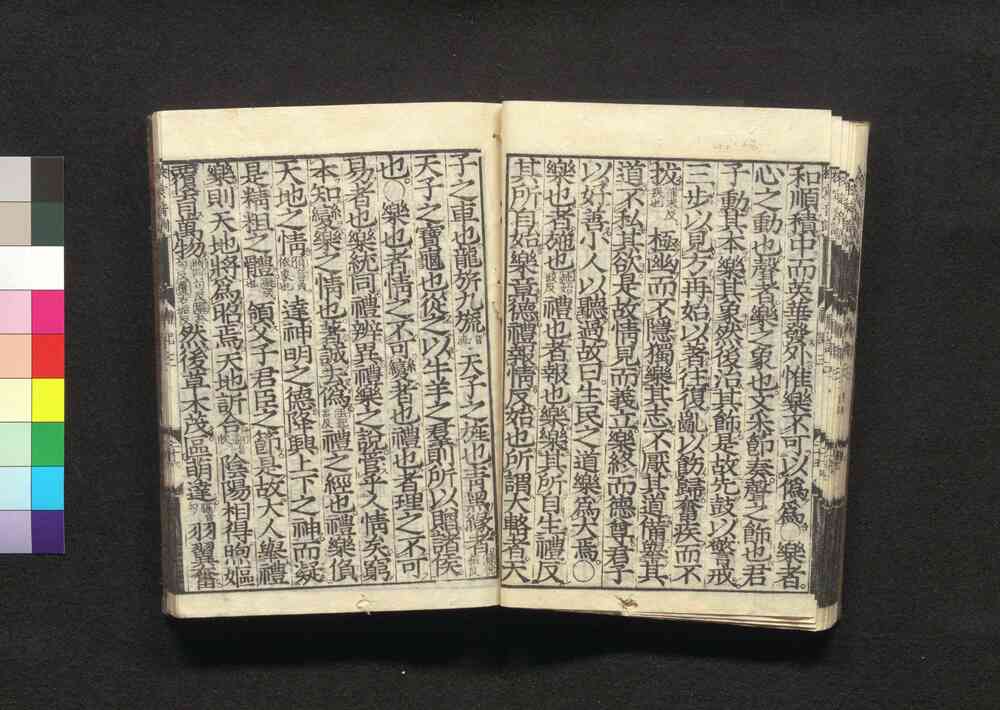 和順積中而英華發外惟樂不可以僞爲○樂者
心之動也聲者樂之象也文采節奏聲之飾也君
子動其本樂其象然後治其飾是故先鼓以警戒
三步以見方再始以著往復亂以飭歸奮疾而不
拔極幽而不隱獨樂其志不厭其道備舉其
道不私其欲是故情見而義立樂終而德尊君子
以好善小人以聽過故曰生民之道樂爲大焉○
樂也者施也禮也者報也樂樂其所自生禮反
其所自始樂章德禮報情反始也所謂大輅者天
子之車也龍旂九旒天子之旌也青黑緣者
天子之寶龜也從之以牛羊之羣則所以贈諸侯
也○樂也者情之不可變者也禮也者理之不可
易者也樂統同禮辨異禮樂之說管乎人情矣窮
本知變樂之情也著誠去僞禮之經也禮樂偩
天地之情達神明之德降興上下之神而凝
是精粗之體領父子君臣之節是故大人舉禮
樂則天地將爲昭焉天地訢合陰陽相得煦嫗
覆育萬物然後草木茂區萌達羽翼奮